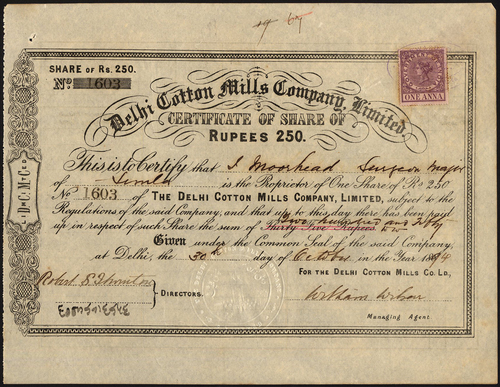 SHARE OF RS. 250.
No. 1603
ONE ANNA
Delhi Cotton Mills Company, Limited.
CERTIFICATE OF SHARE OF
RUPEES 250.
This is to Certify that J. Moorhead Surgeon Major
of Simla is the Proprietor of One Share of Rs 250
No 1603 of THE DELHI COTTON MILLS COMPANY, LIMITED, subject to the
Regulations of the said Company, and that up to this day there has been paid
Two hundred and fifty
up in respect of such Share the sum of Thirty Five Rupees
Given under the Common Seal of the said Company,
at Delhi, the 30th day of October in the Year 1894
FOR THE DELHI COTTON MILLS CO. LD.,
Robert S. Thornton
DIRECTORS.
William
Managing Agent
D. C. M. Co.